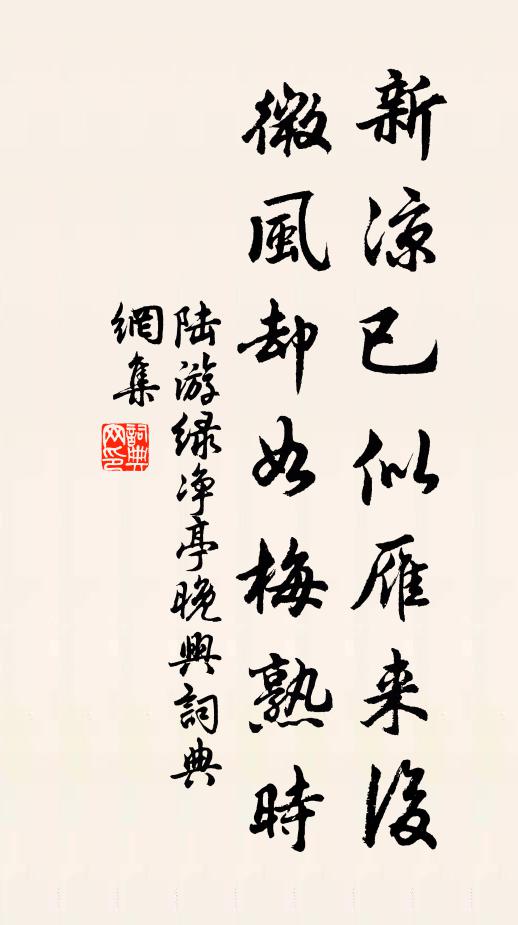 新凉已似雁来後
微風却如梅熟時
陆游绿净亭晚興詞典
網集
詞典网印